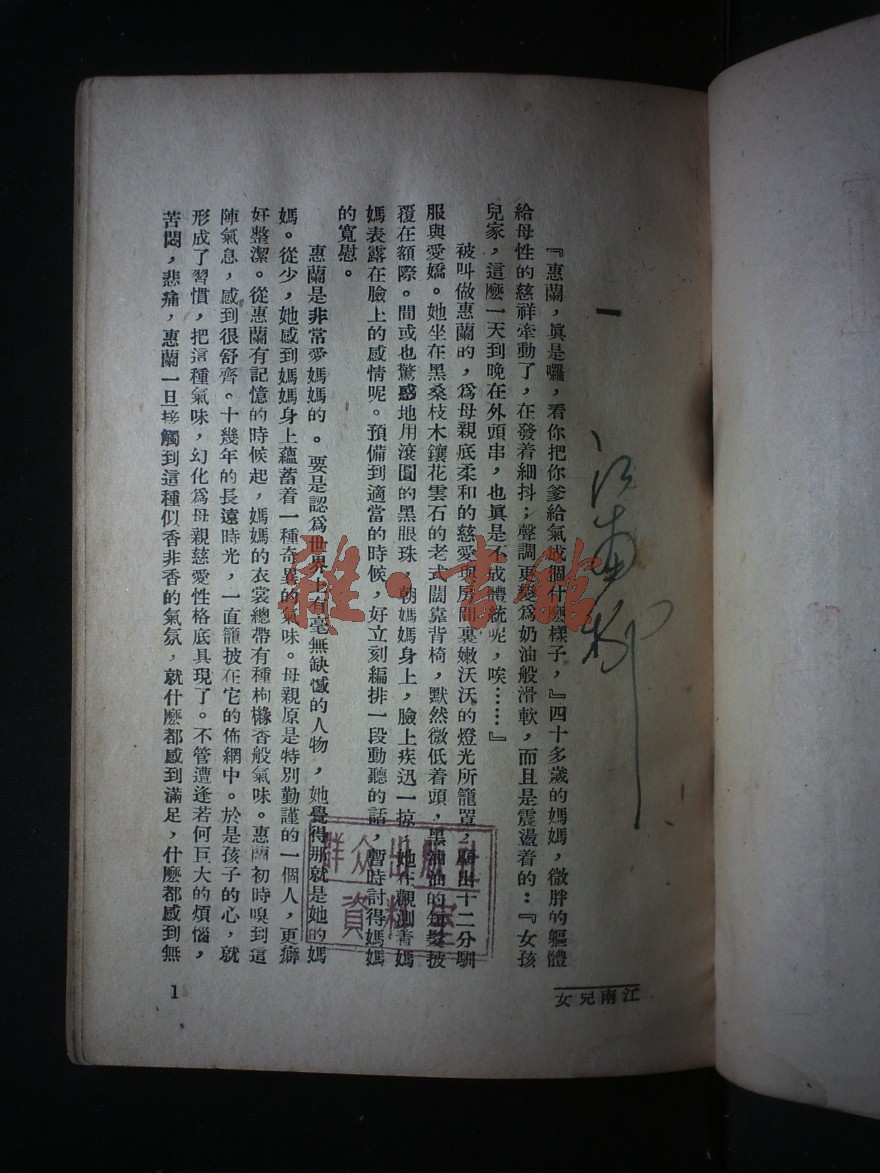 一
『惠蘭，眞是囉，看你把你爹給氣成個什麽樣子，』四十多歲的媽媽，微胖的軀體
給母性的慈祥牽動了，在發着細抖；聲調更變爲奶油般滑軟，而且是震盪着的：『女孩
兒家，這麽一天到晚在外頭串，也眞是不成體統呢，唉……』
被叫做惠蘭的，爲母親底柔和的慈愛與房間裏嫩沃沃的燈光所籠罩，十二分馴
服與愛嬌。她坐在黑桑枝木鑲花雲石的老式闊靠背椅，默然微低着頭，黑油油的髮披
覆在額際。間或也驚惑地用滾圓的黑眼珠，朝媽媽身上，臉上疾迅一掠，她在觀測着媽
媽表露在臉上的感情呢。預備到適當的時候，好立刻編排一段動聽的話，暫時討得媽媽
的寬慰。
惠蘭是非常愛媽媽的。要是認爲世界上有毫無缺憾的人物，她覺得那就是她的媽
媽。從少，她感到媽媽身上蘊蓄着一種奇異的氣味。母親原是特別勤謹的一個人，更癖
好整潔。從惠蘭有記憶的時候起，媽媽的衣裳總帶有種枸櫞香般氣味。惠蘭初時嗅到這
陣氣息，感到很舒齊。十幾年的長遠時光，一直籠披在它的佈網中。於是孩子的心，就
形成了習慣，把這種氣味，幻化爲母親慈愛性格底具現了。不管遭逢若何巨大的煩惱，
苦悶，悲痛，惠蘭一旦接觸到這種似香非香的氣氛，就什麽都感到滿足，什麽都感到無
江南兒女
1
群众出版社
資料室
雜·書館